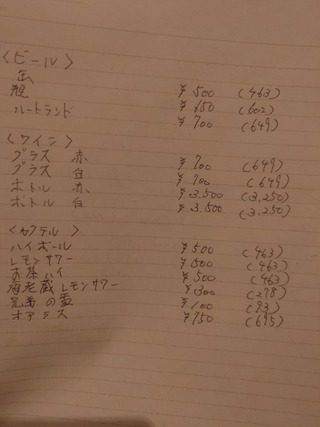 〈ビール〉
缶 ¥500 (463)
瓶 ¥650 (602)
ハートランド ¥700 (649)
〈ワイン〉
グラス 赤 ¥700 (649)
グラス 白 ¥700 (649)
ボトル 赤 ¥3.500 (3.250)
ボトル 白 ¥3.500 (3.250)
〈カクテル〉
ハイボール ¥500 (463)
レモンサワー ¥500 (463)
お茶ハイ ¥500 (463)
海老蔵レモンサワー ¥300 (278)
の ¥100 (93)
オアシス ¥750 (695)